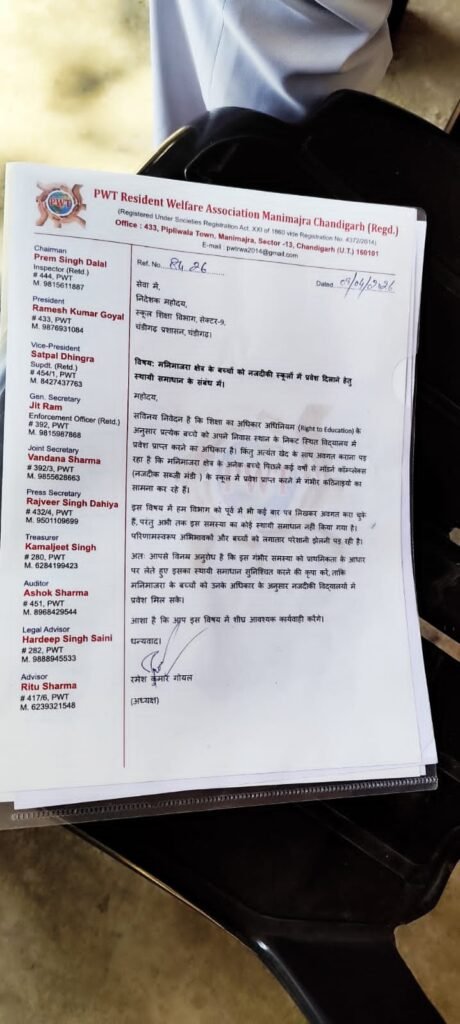 PWT
PWT Resident Welfare Association Manimajra Chandigarh (Regd.)
(Registered Under Societies Registration Act. XXI of 1860 vide Registration No. 4372/2014)
Office : 433, Pipliwala Town, Manimajra, Sector -13, Chandigarh (U.T.) 160101
E-mail : pwtrwa2014@gmail.com
Chairman
Prem Singh Dalal
Inspector (Retd.)
# 444, PWT
M. 9815611887
President
Ramesh Kumar Goyal
# 433, PWT
M. 9876931084
Vice-President
Satpal Dhingra
Supdt. (Retd.)
# 454/1, PWT
M. 8427437763
Gen. Secretary
Jit Ram
Enforcement Officer (Retd.)
# 392, PWT
M. 9815987868
Joint Secretary
Vandana Sharma
# 392/3, PWT
M. 9855628663
Press Secretary
Rajveer Singh Dahiya
# 432/4, PWT
M. 9501109699
Treasurer
Kamaljeet Singh
# 280, PWT
M. 6284199423
Auditor
Ashok Sharma
# 451, PWT
M. 8968429544
Legal Advisor
Hardeep Singh Saini
# 282, PWT
M. 9888945533
Advisor
Ritu Sharma
# 417/6, PWT
M. 6239321548
Ref. No. 84 26
Dated 09/04/2026
सेवा में,
निदेशक महोदय,
स्कूल शिक्षा विभाग, सेक्टर-9,
चंडीगढ़ प्रशासन, चंडीगढ़।
विषय: मनिमाजरा क्षेत्र के बच्चों को नजदीकी स्कूलों में प्रवेश दिलाने हेतु
स्थायी समाधान के संबंध में।
महोदय,
सविनय निवेदन है कि शिक्षा का अधिकार अधिनियम (Right to Education) के
अनुसार प्रत्येक बच्चे को अपने निवास स्थान के निकट स्थित विद्यालय में
प्रवेश प्राप्त करने का अधिकार है। किंतु अत्यंत खेद के साथ अवगत कराना पड़
रहा है कि मनिमाजरा क्षेत्र के अनेक बच्चे पिछले कई वर्षों से मॉडर्न कॉम्प्लेक्स
(नजदीक सब्जी मंडी ) के स्कूल में प्रवेश प्राप्त करने में गंभीर कठिनाइयों का
सामना कर रहे हैं।
इस विषय में हम विभाग को पूर्व में भी कई बार पत्र लिखकर अवगत करा चुके
हैं, परंतु अभी तक इस समस्या का कोई स्थायी समाधान नहीं किया गया है।
परिणामस्वरूप अभिभावकों और बच्चों को लगातार परेशानी झेलनी पड़ रही है।
अतः आपसे विनम्र अनुरोध है कि इस गंभीर समस्या को प्राथमिकता के आधार
पर लेते हुए इसका स्थायी समाधान सुनिश्चित करने की कृपा करें, ताकि
मनिमाजरा के बच्चों को उनके अधिकार के अनुसार नजदीकी विद्यालयों में
प्रवेश मिल सके।
आशा है कि आप इस विषय में शीघ्र आवश्यक कार्यवाही करेंगे।
धन्यवाद।
रमेश कुमार गोयल
(अध्यक्ष)